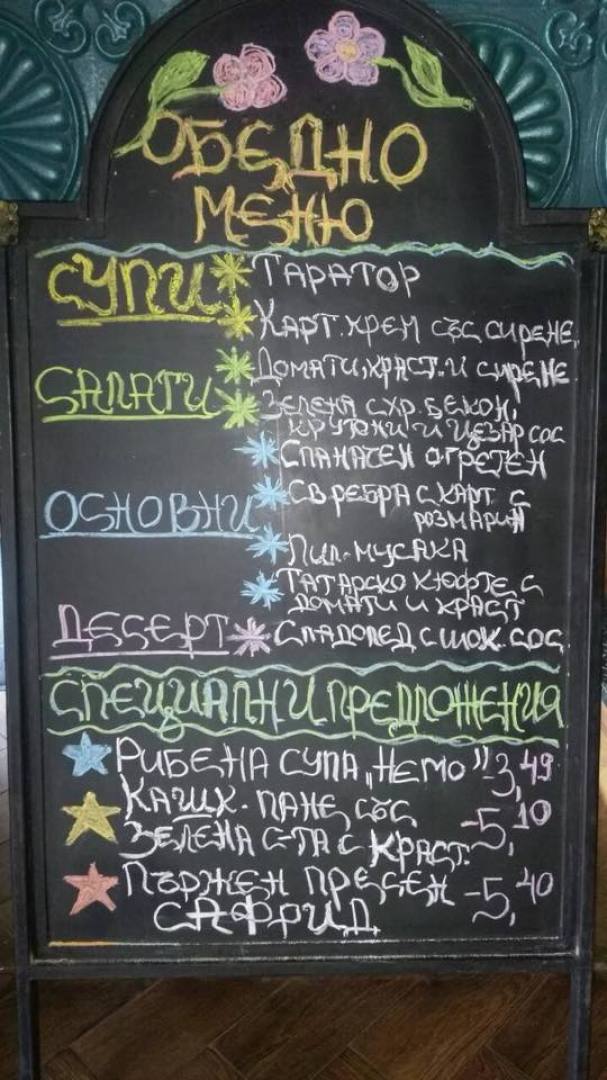 ОБЕДНО
МЕНЮ
СУПИ * ТАРАТОР
* КАРТ. КРЕМ СЪС СИРЕНЕ
САЛАТИ * ДОМАТИ, КРАСТ. И СИРЕНЕ
* ЗЕЛЕНА С ХР. БЕКОН,
КРУТОНИ И ЦЕЗАР СОС
* СПАНАЧЕН ОГРЕТЕН
ОСНОВНИ * СВ РЕБРА С КАРТ. С
РОЗМАРИН
* ПИЛ. МУСАКА
* ТАТАРСКО КЮФТЕ С
ДОМАТИ И КРАСТ
ДЕСЕРТ * СЛАДОЛЕД С ШОК. СОС
СПЕЦИАЛНИ ПРЕДЛОЖЕНИЯ
РИБЕНА СУПА „НЕМО" - 3,49
КАШК. ПАНЕ СЪС
ЗЕЛЕНА С-ТА С КРАСТ. - 5,10
ПЪРЖЕН ПРЕСЕН - 5,40
САФРИД